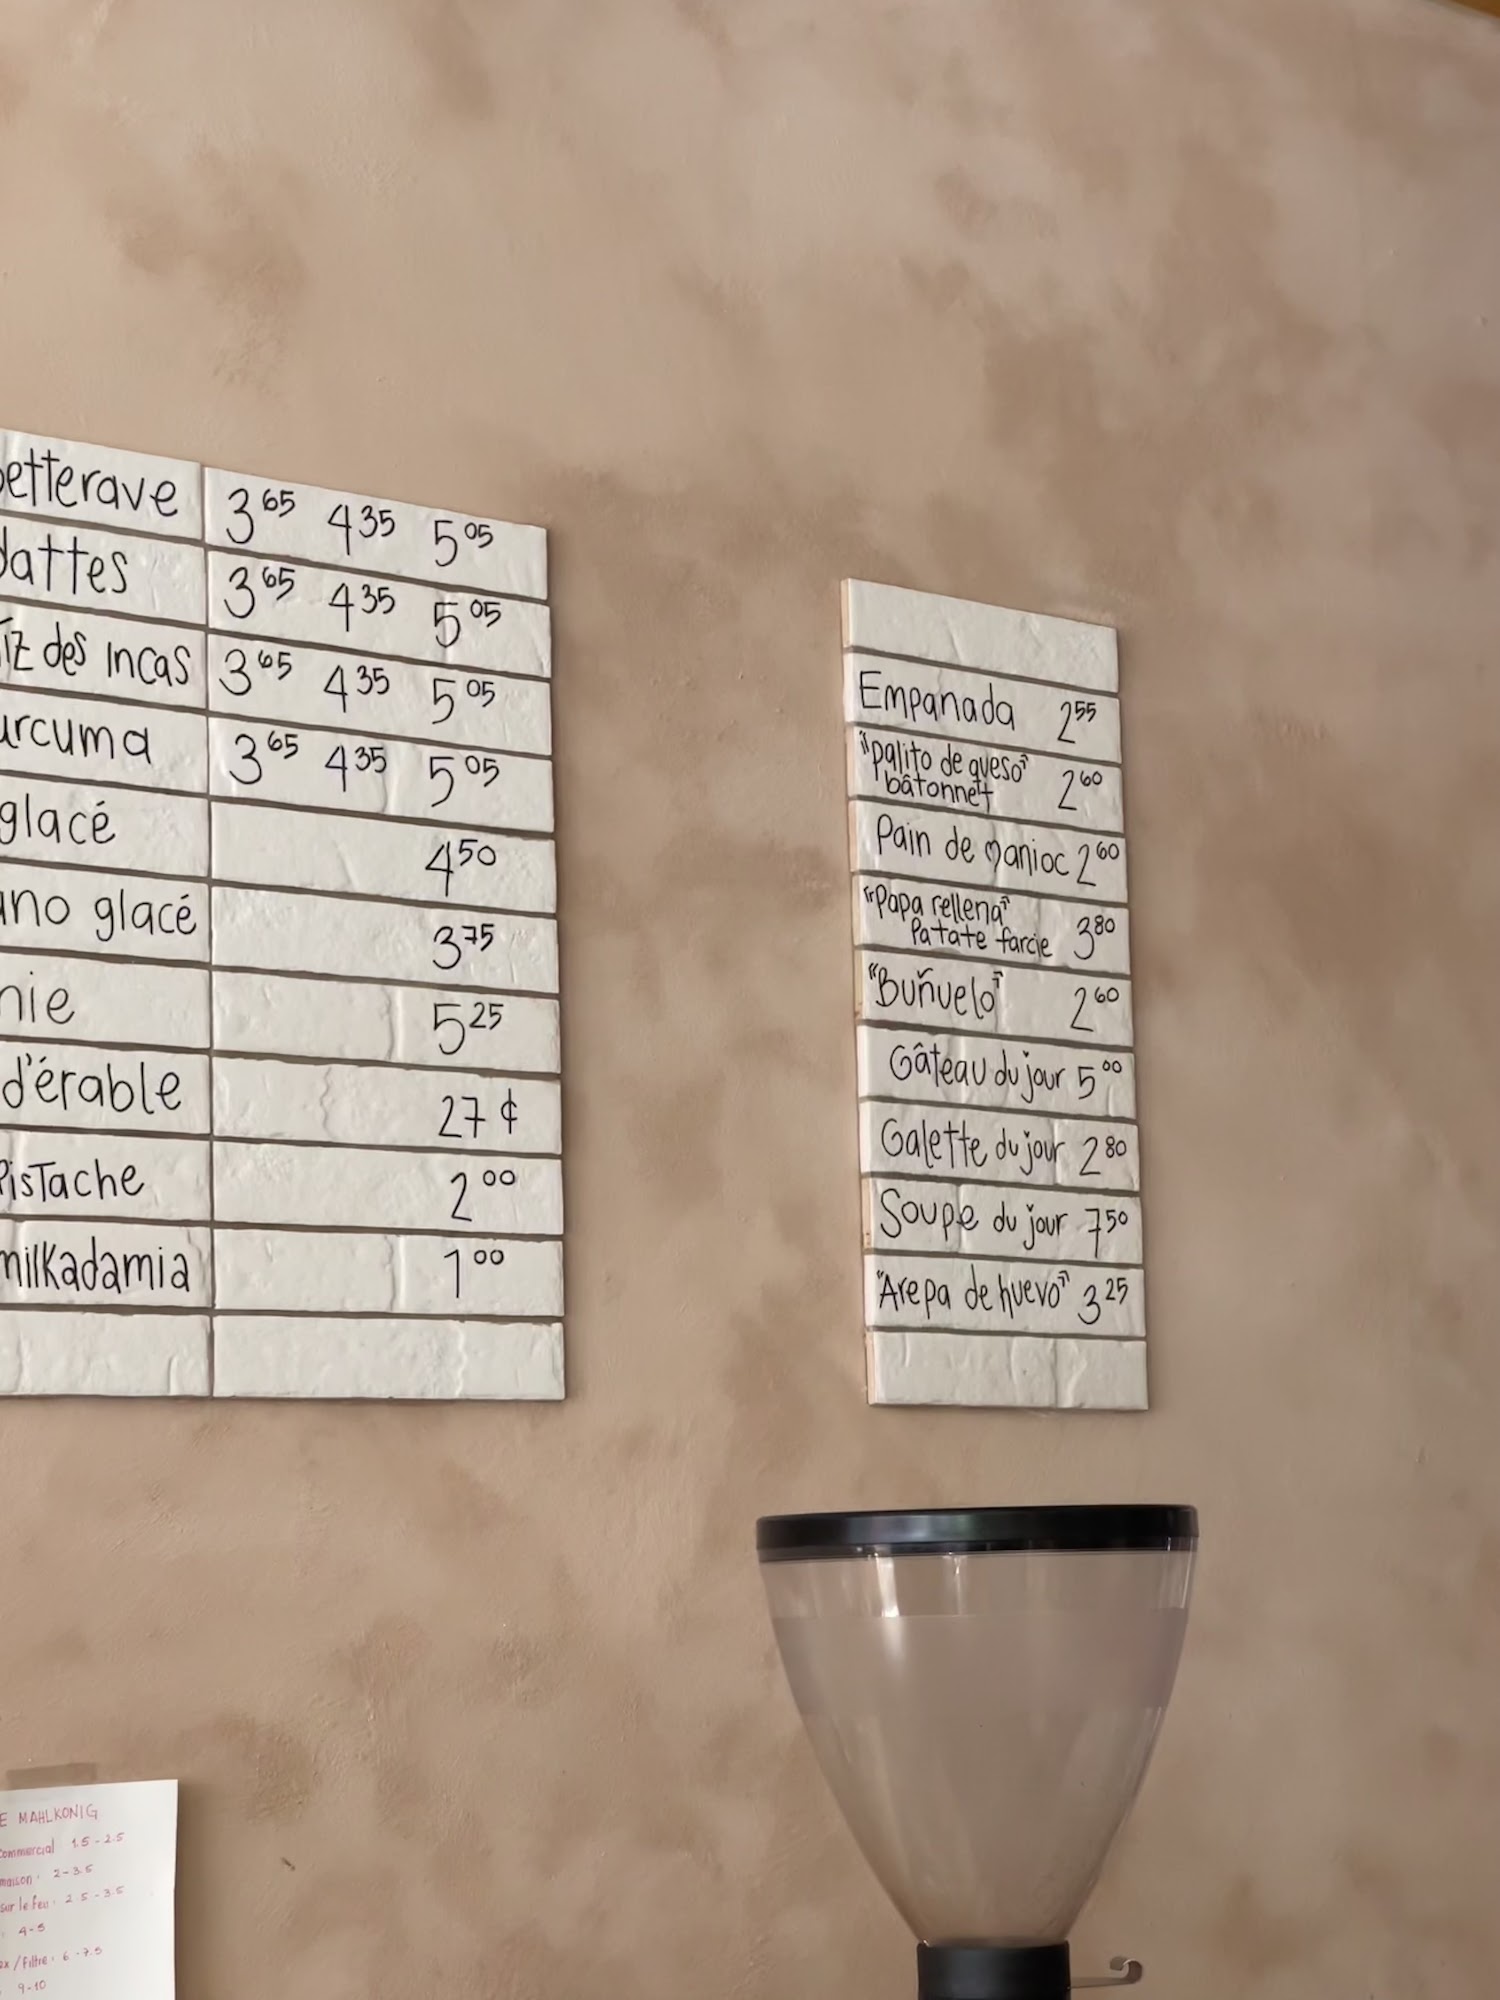 betterave 3 65 4 35 5 05
dattes 3 65 4 35 5 05
des incas 3 65 4 35 5 05
urcuma 3 65 4 35 5 05
glacé 4 50
ano glacé 3 75
nie 5 25
d'érable 27 ¢
Pistache 2 00
milkadamia 1 00
Empanada 2 55
"palito de queso"
bâtonnet 2 60
Pain de manioc 2 60
"Papa rellena"
Patate farcie 3 80
"Buñuelo" 2 60
Gâteau du jour 5 00
Galette du jour 2 80
Soupe du jour 7 50
"Arepa de huevo" 3 25
E MAHLKONIG
Commercial 1.5 - 2.5
maison : 2 - 3.5
sur le feu : 2.5 - 3.5
: 4 - 5
ex / Filtre : 6 - 7.5
: 9 - 10